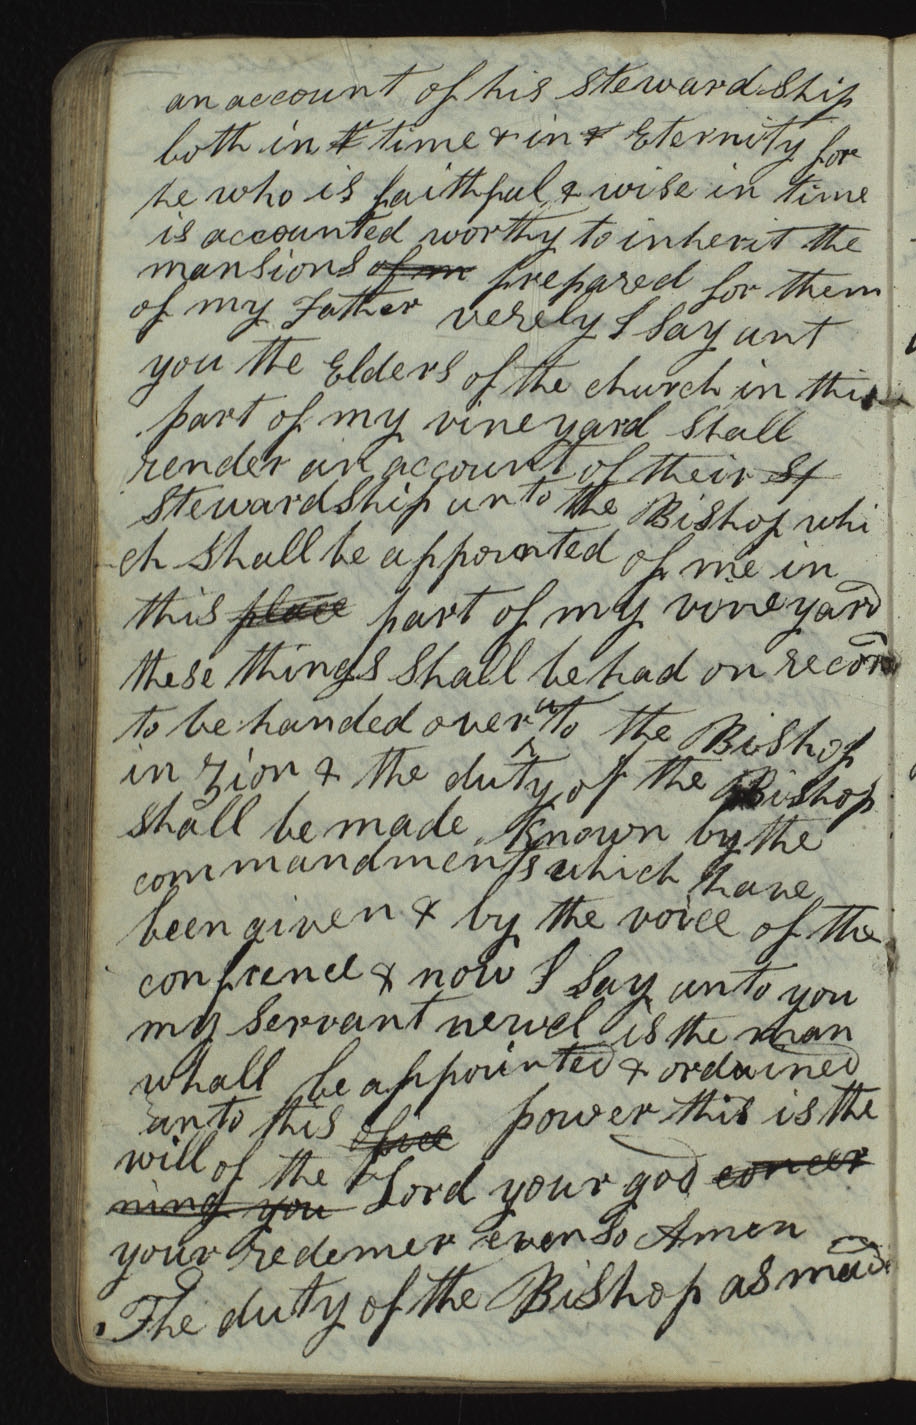 an account of his Steward Ship
both in t time & in & Eternity for
he who is faithful & wise in time
is accounted worthy to inherit the
mansions of m prepared for them
of my Father verely I Say unt
you the Elders of the church in this
part of my vineyard Shall
render an account of their St
Stewardship unto the Bishop whi
ch Shall be appointed of me in
this place part of my vineyard
these things Shall be had on record
to be handed over unto the Bishop
in Zion & the duty of the Bishop
Shall be made known by the
commandments which have
been given & by the voice of the
confrence & now I Say unto you
my Servant newel is the man
whall be appointed & ordained
unto this office power this is the
will of the Lord your god concer
ning you
your redemer even So Amen
The duty of the Bishop as mad